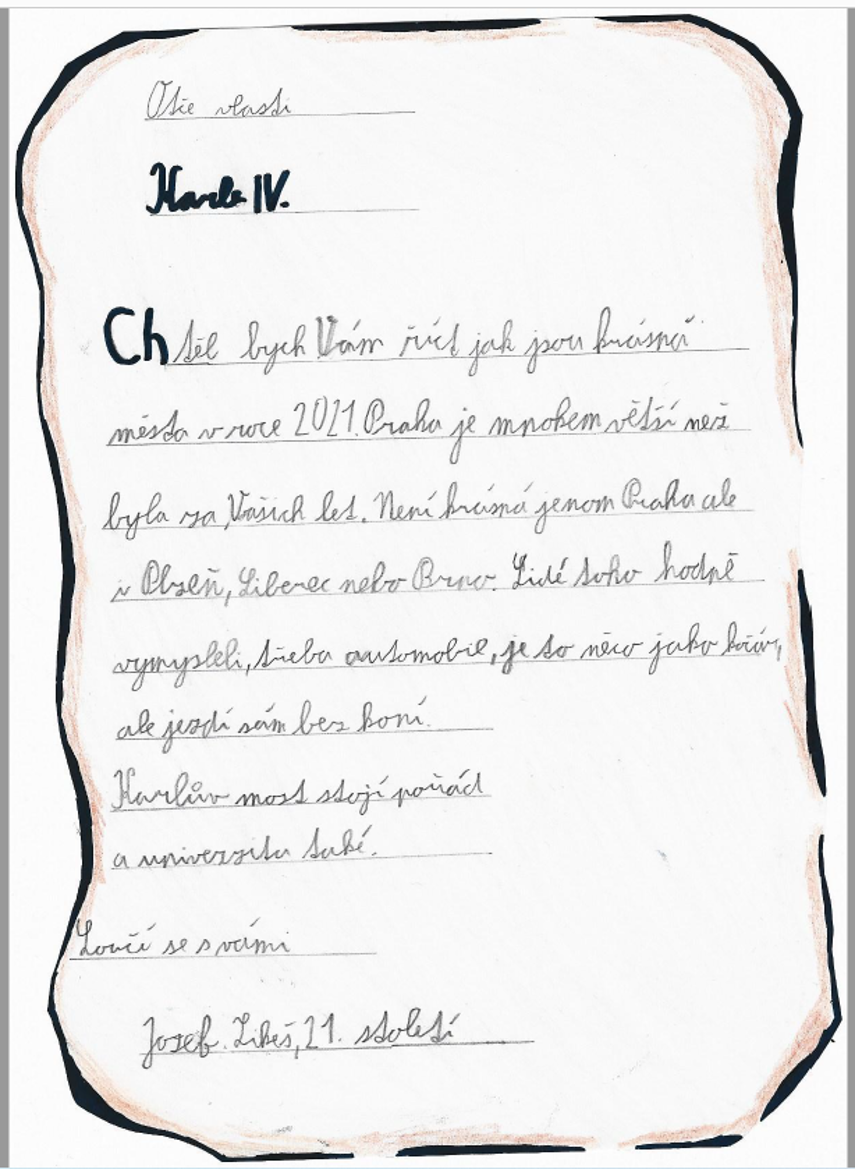 Otče vlasti
Karle IV.
Chtěl bych Vám říct jak jsou krásná
města v roce 2021. Praha je mnohem větší než
byla za Vašich let. Není krásná jenom Praha ale
i Plzeň, Liberec nebo Brno. Lidé toho hodně
vymysleli, třeba automobil, je to něco jako kočár,
ale jezdí sám bez koní.
Karlův most stojí pořád
a univerzita také.
Loučí se s vámi
Josef. Likeš, 21. století